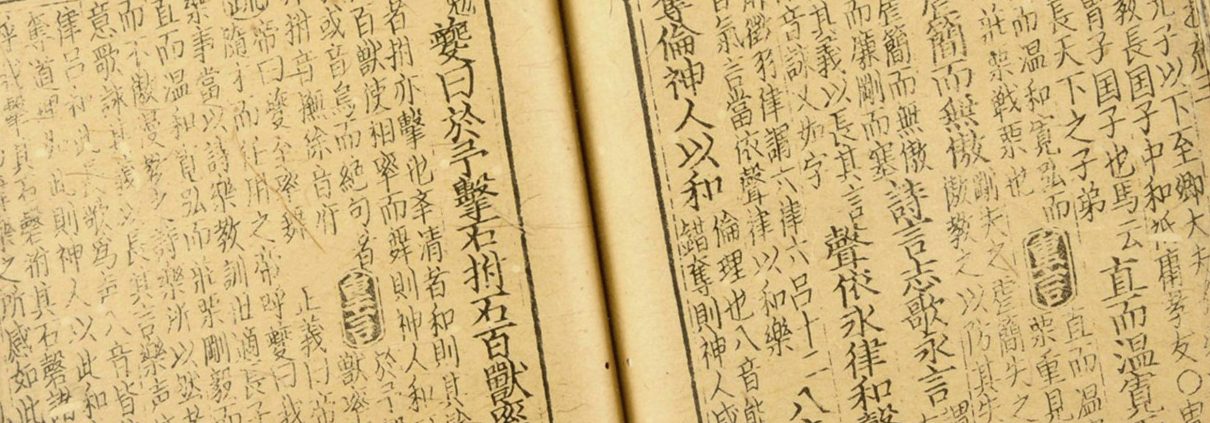 元子以下至卿大夫
教長国子中和祗庸孝友〇
胄子国子也馬云直而溫寬
長天下之子弟
而溫和寬弘而重言直而温
莊栗戰栗也栗重見
虐簡而無傲剛失之虐簡失之
傲教之以防其失
虐簡而無傲詩言志歌永言
而廉剛而塞
其義以長其言聲依永律和聲
音詠又如字
徵羽律謂六律六呂十二八
音氣言當依聲律以和樂
奪倫神人以和倫理也八音能
錯奪則神人咸
夔曰於予擊石拊石百獸率
者拊亦擊也㪯清者和則其餘
百獸使相率而舞則神人和
於予
或音烏而絕句者重言獸率
拊音撫徐音府
疏帝曰夔至率舞 正義曰帝
隨才而任用之帝呼夔曰我
樂事當以詩樂教訓世適長子
直而溫和寬弘而莊栗剛毅而
而不傲慢教之詩樂所以然者
意歌詠其義以長其言樂聲
律呂和此長歌為聲八音皆
奪道理如此則神人以此和
呼我擊其石磬拊其石磬諸
樂之所感如此